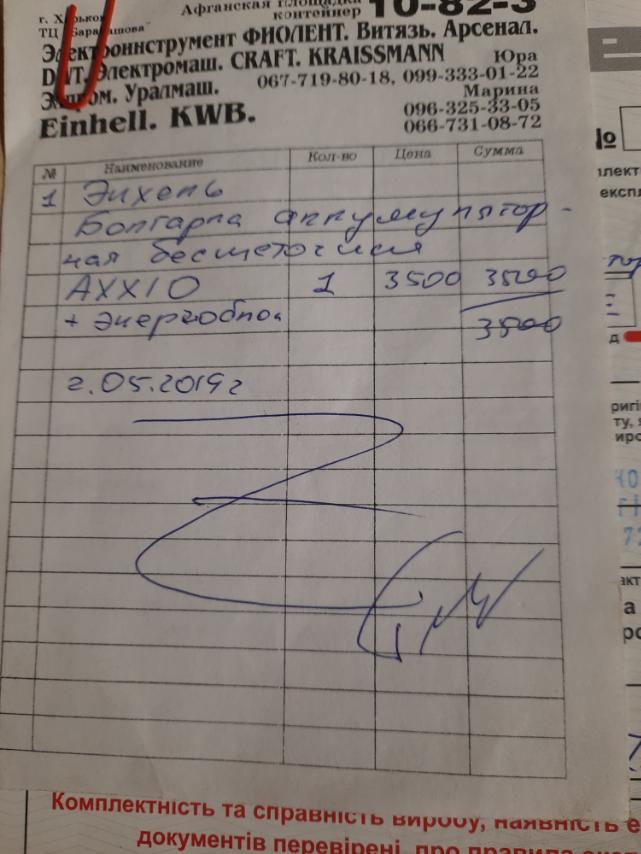 г. Харьков
ТЦ "Барабашова"
Афганская площадка
контейнер 10-82-3
Электроинструмент ФИОЛЕНТ. Витязь. Арсенал.
DWT. Электромаш. CRAFT. KRAISSMANN
Эпром. Уралмаш.
Юра
067-719-80-18, 099-333-01-22
Марина
Einhell. KWB.
096-325-33-05
066-731-08-72
№ Наименование Кол-во Цена Сумма
1 Энхель
Болгарка аккумулятор-
ная бесщеточная
AXXIO 1 3500 3500
+ энергоблок 3500
г.05.2019г
№
експл
д
а
Комплектність та справність виробу, наявність
документів перевірені, про правила